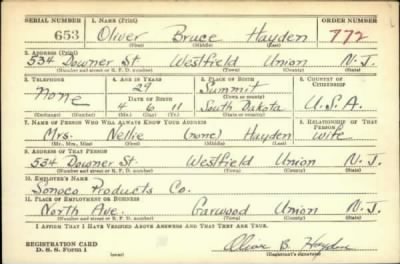 SERIAL NUMBER 1. NAME (Print) ORDER NUMBER
653 Oliver Bruce Hayden 772
(First) (Middle) (Last)
2. ADDRESS (Print)
534 Downer St. Westfield Union N.J.
(Number and street or R. F. D. number) (Town) (County) (State)
3. TELEPHONE 4. AGE IN YEARS 5. PLACE OF BIRTH 6. COUNTRY OF CITIZENSHIP
None 29 Summit
(Town or county)
DATE OF BIRTH
4 6 11 South Dakota U.S.A.
(Exchange) (Number) (Mo.) (Day) (Yr.) (State or country)
7. NAME OF PERSON WHO WILL ALWAYS KNOW YOUR ADDRESS 8. RELATIONSHIP OF THAT PERSON
Mrs. Nellie (none) Hayden Wife
(Mr., Mrs., Miss) (First) (Middle) (Last)
9. ADDRESS OF THAT PERSON
534 Downer St. Westfield Union N.J.
(Number and street or R. F. D. number) (Town) (County) (State)
10. EMPLOYER'S NAME
Sonoco Products Co.
11. PLACE OF EMPLOYMENT OR BUSINESS
North Ave. Garwood Union N.J.
(Number and street or R. F. D. number) (Town) (County) (State)
I AFFIRM THAT I HAVE VERIFIED ABOVE ANSWERS AND THAT THEY ARE TRUE.
REGISTRATION CARD
D. S. S. Form 1 Oliver B. Hayden
(over) (Registrant's signature)